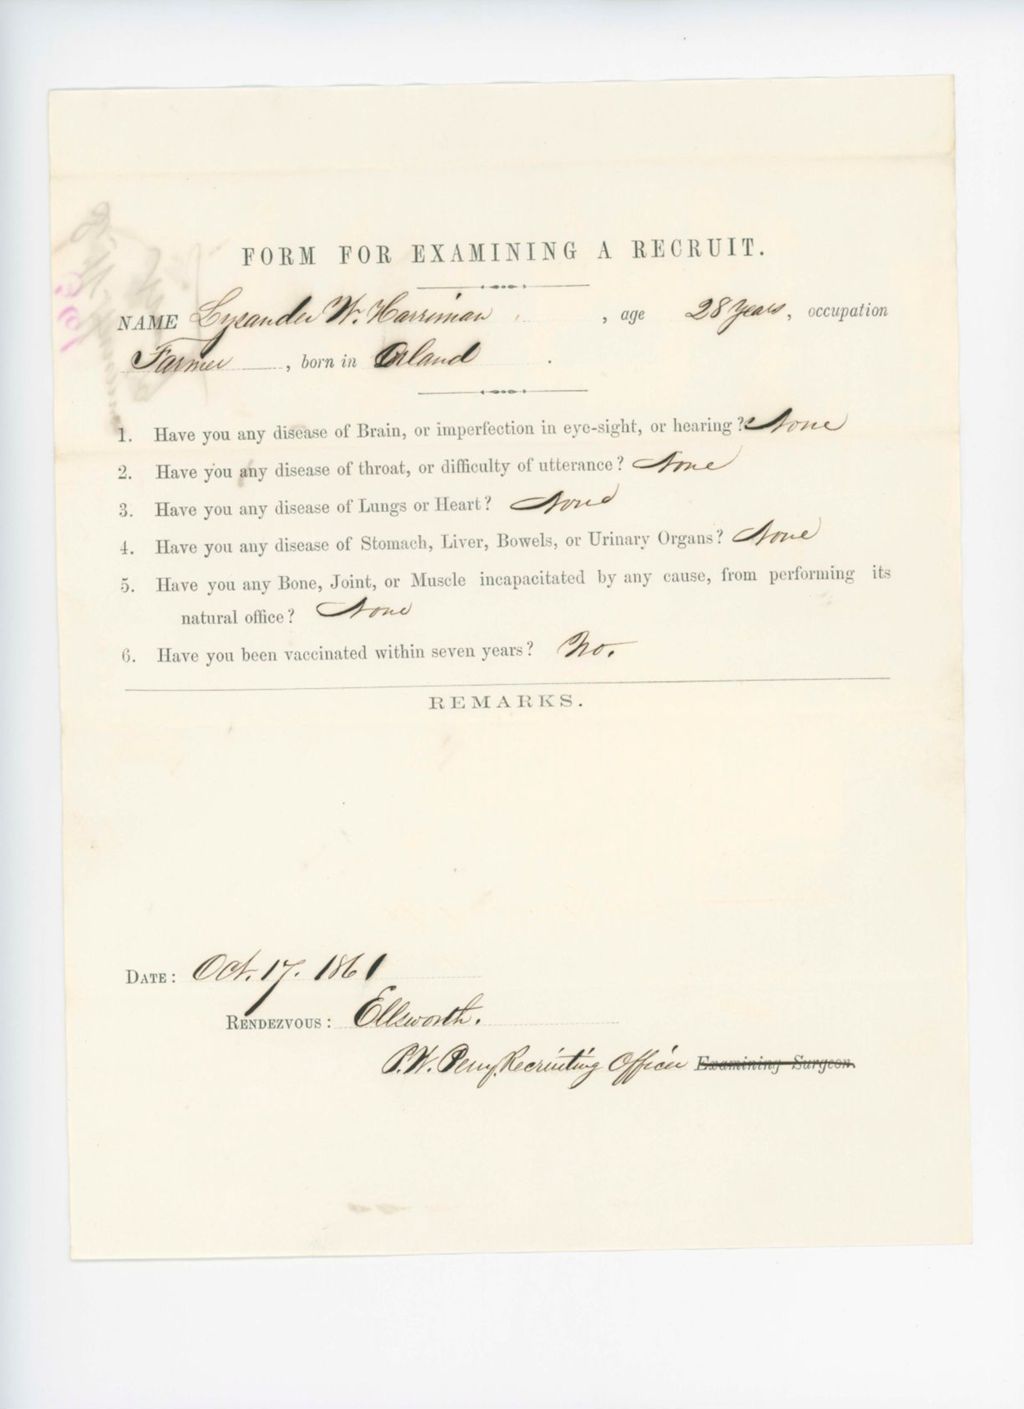 FORM FOR EXAMINING A RECRUIT.
NAME Lysander W. Harriman , age 28 years, occupation
Farmer , born in Orland .
1. Have you any disease of Brain, or imperfection in eye-sight, or hearing? None
2. Have you any disease of throat, or difficulty of utterance? None
3. Have you any disease of Lungs or Heart? None
4. Have you any disease of Stomach, Liver, Bowels, or Urinary Organs? None
5. Have you any Bone, Joint, or Muscle incapacitated by any cause, from performing its
natural office? None
6. Have you been vaccinated within seven years? No.
REMARKS.
DATE: Oct. 17. 1861
RENDEZVOUS: Ellsworth.
P. W. Perry, Recruiting Officer Examining Surgeon.